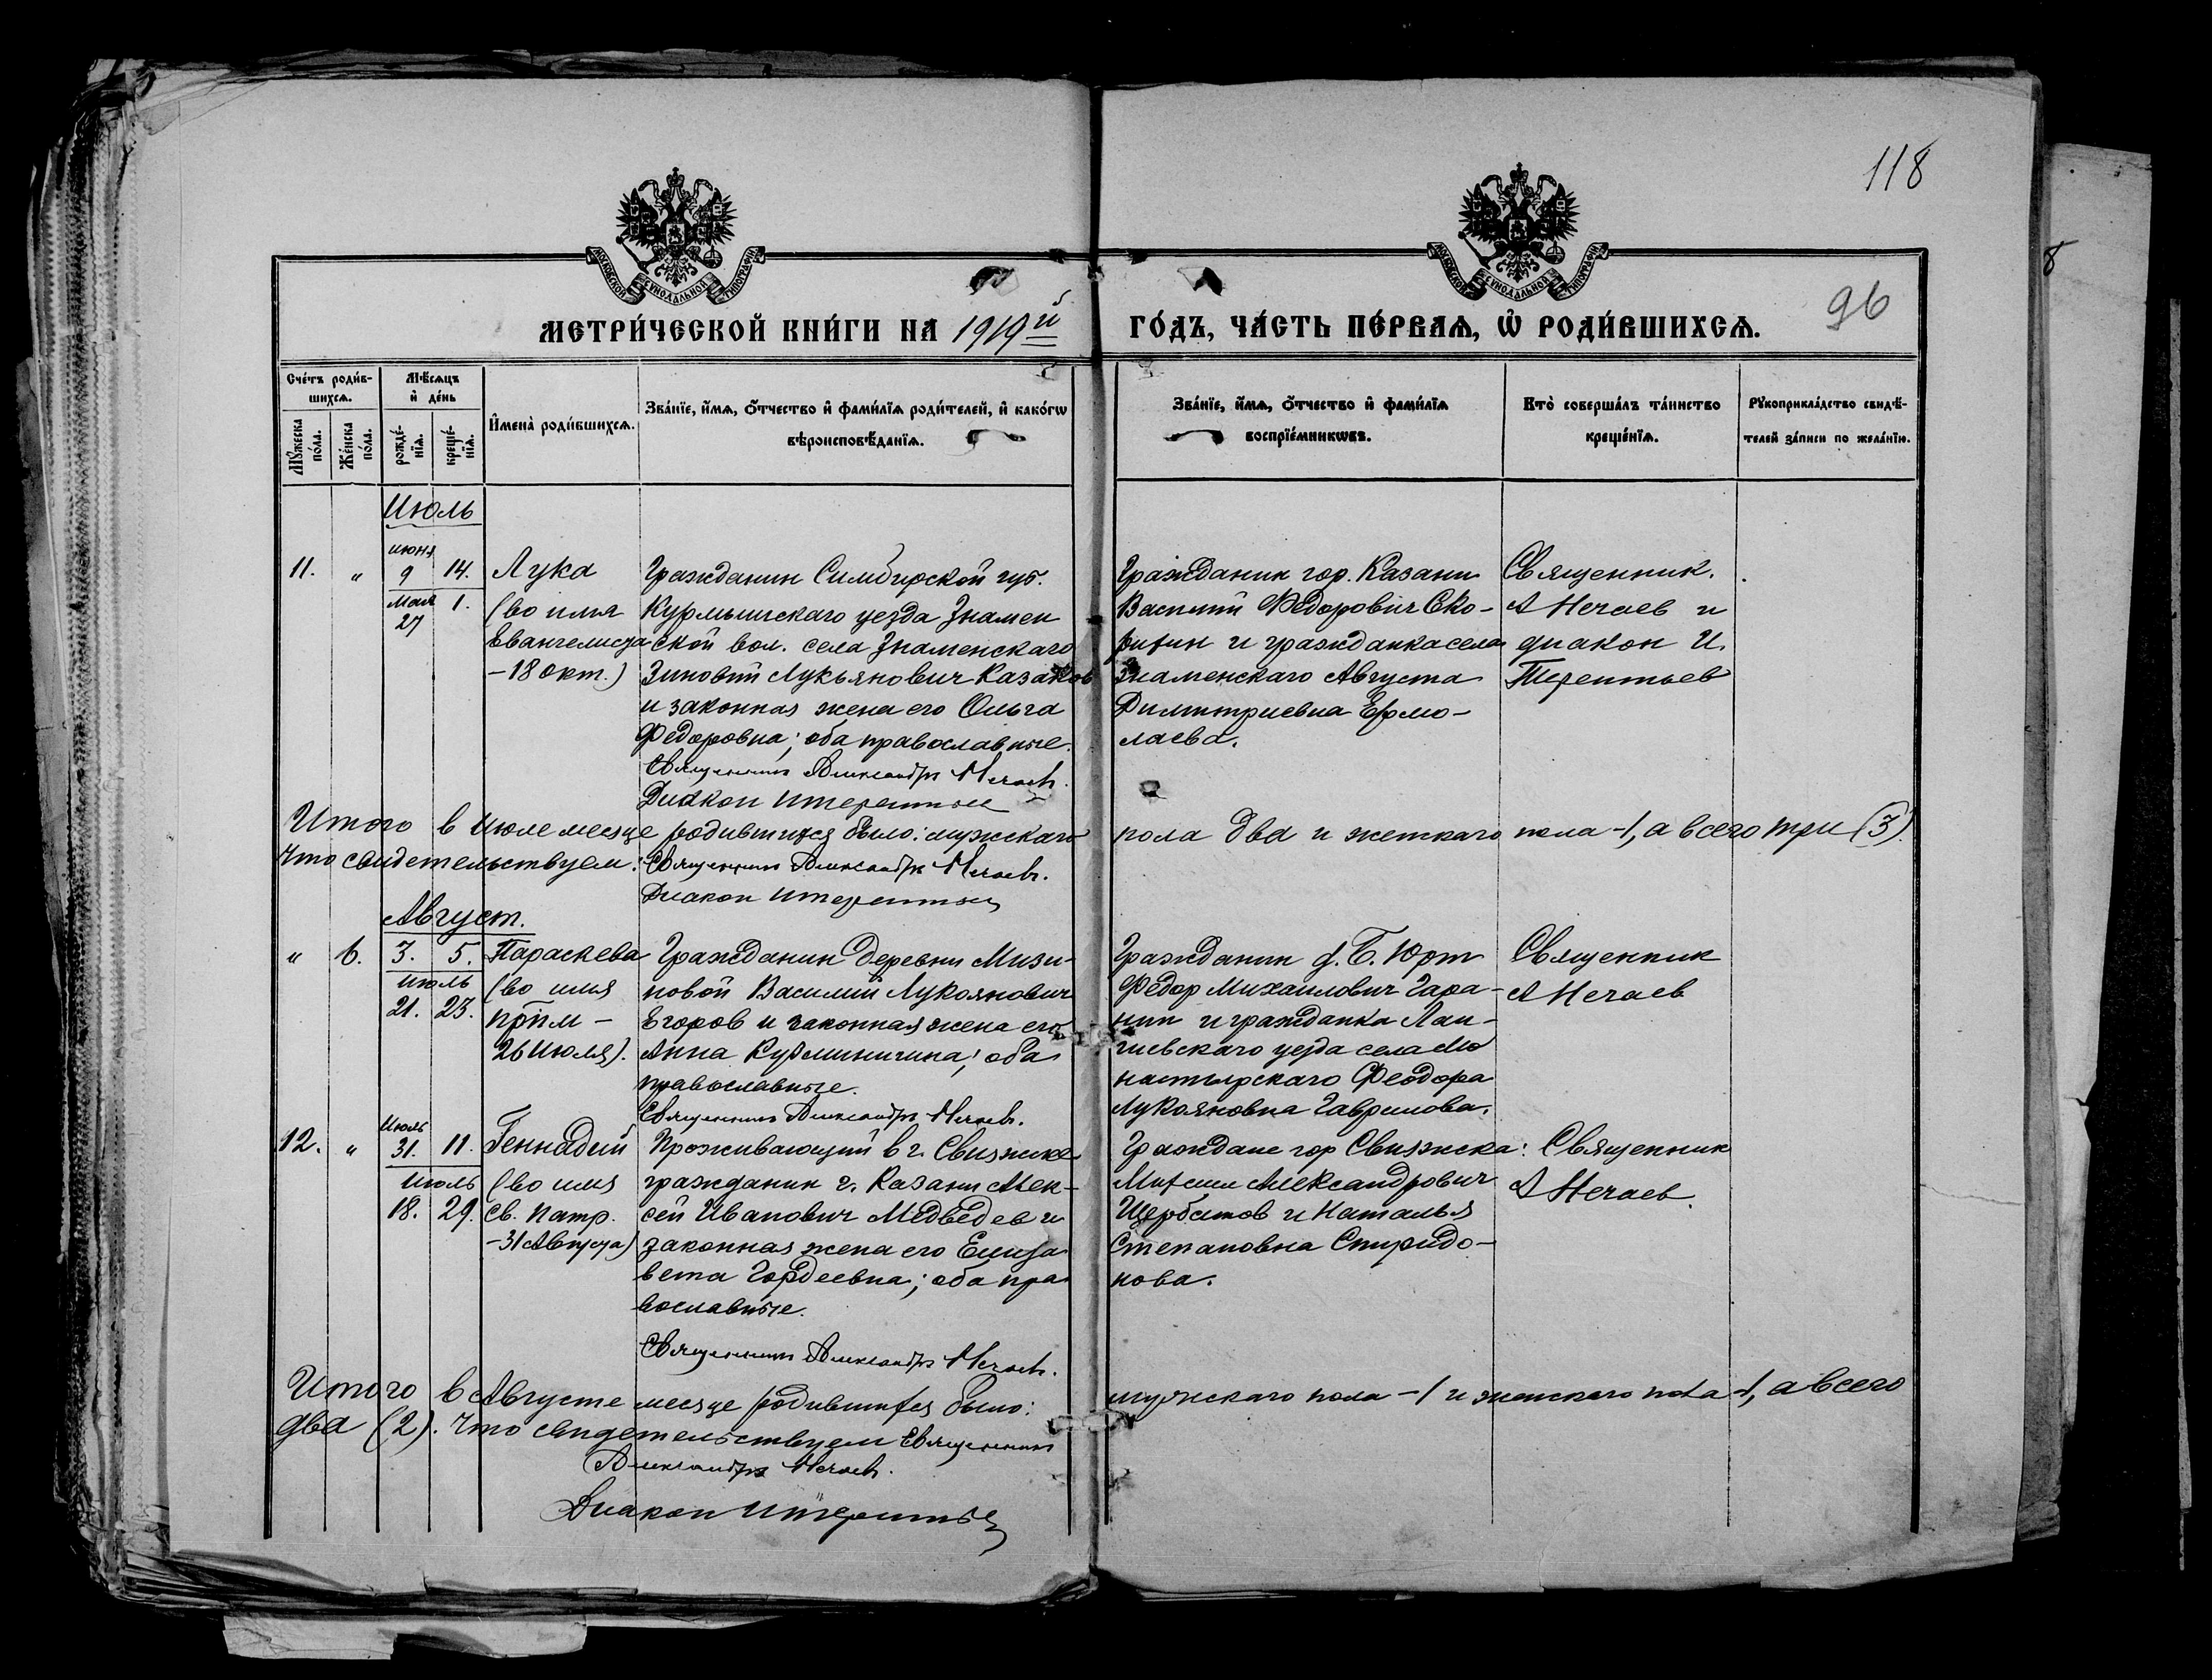 118
96
МОСКОВСКОЙ СѴНОДАЛЬНОЙ ТИПОГРАФІИ
МОСКОВСКОЙ СѴНОДАЛЬНОЙ ТИПОГРАФІИ
МЕТРИ́ЧЕСКОЙ КНИ́ГИ НА 1919й ГО́ДЪ, ЧА́СТЬ ПЕ́РВАѦ, Ѡ҆ РОДИ́ВШИХСѦ.
Сче́тъ роди́в-
шихсѧ.
Мꙋжеска по́ла.
Же́нска по́ла.
Мѣ́сѧцъ
и҆ де́нь
рожде́-
нїѧ.
креще́-
нїѧ.
И҆мена̀ роди́вшихсѧ.
Зва́нїе, и҆́мѧ, ѻ҆́тчество и҆ фами́лїѧ роди́телей, и҆ како́гѡ
вѣроисповѣ́данїѧ.
Зва́нїе, и҆́мѧ, ѻ҆́тчество и҆ фами́лїѧ
воспрїе́мникѡвъ.
Кто̀ соверша́лъ та́инство
креще́нїѧ.
Рꙋкоприкла́дство свидѣ́-
телей за́писи по жела́нїю.
Июль
11. " июня 9 14. Мая 27 1.
Лука
(во имя
Евангелиста
-18 окт.)
Гражданин Симбирской губ.
Курмышскаго уезда Знамен
ской вол. села Знаменскаго
Зиновий Лукьянович Казаков
и законная жена его Ольга
Федоровна; оба православные.
Священник Александр Нечаев.
Диакон И Терентьев
Гражданин гор. Казани
Василий Федорович Ско-
ризин и гражданка села
Знаменскаго Августа
Димитриевна Ермо-
лаева.
Священник.
А Нечаев и
диакон И.
Терентьев
Итого в июле месяце родившихся было: мужскаго пола два и женскаго пола -1, а всего три (3).
Что свидетельствуем: Священник Александр Нечаев.
Диакон И Терентьев
Август.
" 6. 3. 5. июль 21. 23.
Параскева
(во имя
прпм -
26 июля).
Гражданин деревни Мизи-
новой Василий Лукоянович
Егоров и законная жена его
Анна Кузминична; оба
православные.
Священник Александр Нечаев.
Гражданин д. Б. Юрт
Федор Михаилович Гара-
нин и гражданка Лаи-
шевскаго уезда села Мо
настырскаго Феодора
Лукояновна Гаврилова.
Священник
А Нечаев
12. " Июль 31. 11. июль 18. 29.
Геннадий
(во имя
св. Патр.
-31 Августа)
Проживающий в г. Свияжске
гражданин г. Казани Алек-
сей Иванович Медведев и
законная жена его Елиза
вета Гордеевна; оба пра
вославные.
Священник Александр Нечаев.
Граждане гор Свияжска:
Александрович
Щербаков и Наталья
Степановна Спиридо-
нова.
Священник
А Нечаев.
Итого в Августе месяце родившихся было: мужскаго пола -1 и женскаго пола -1, а всего
два (2). Что свидетельствуем Священник
Александр Нечаев.
Диакон И Терентьев